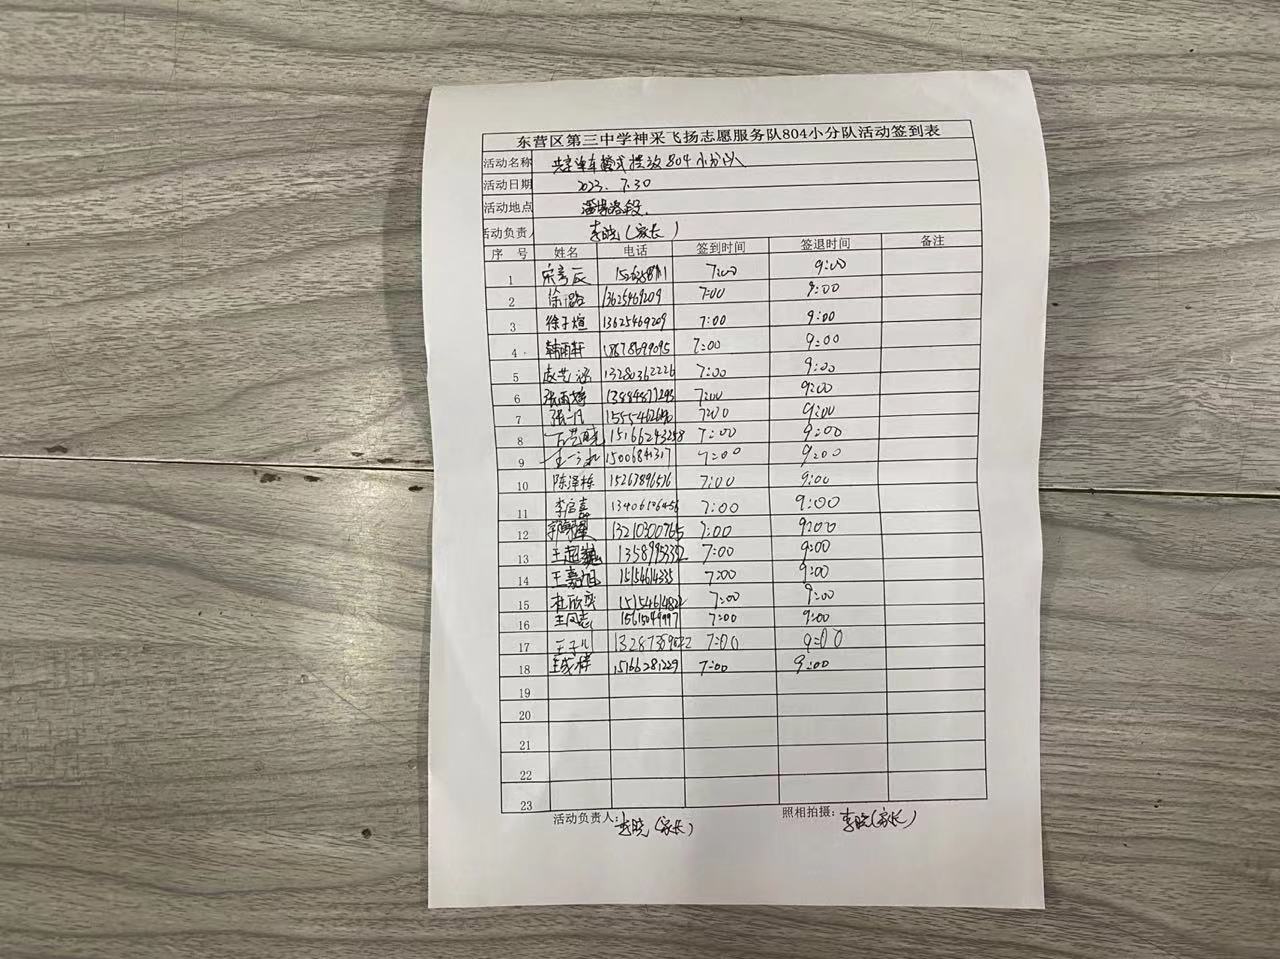 东营区第三中学神采飞扬志愿服务队804小分队活动签到表
活动名称 共享单车整式摆放804小分队
活动日期 2023.7.30
活动地点 路段.
活动负责人 李晓(家长)
序号 姓名 电话 签到时间 签退时间 备注
1 宋彦辰 7:00 9:00
2 徐璐 13625469209 7:00 9:00
3 徐子煊 13625469209 7:00 9:00
4 韩雨轩 18678699095 7:00 9:00
5 13280362226 7:00 9:00
6 张雨婷 7:00 9:00
7 张一凡 7:00 9:00
8 15166293258 7:00 9:00
9 15006841317 7:00 9:00
10 陈泽栋 15267896516 7:00 9:00
11 李启嘉 7:00 9:00
12 13210300765 7:00 9:00
13 王超巍 13589953352 7:00 9:00
14 王嘉旭 7:00 9:00
15 杜欣奕 7:00 9:00
16 王风志 7:00 9:00
17 王子儿 7:00 9:00
18 王成祥 15166281229 7:00 9:00
19
20
21
22
23
活动负责人: 李晓(家长) 照相拍摄: 李晓(家长)